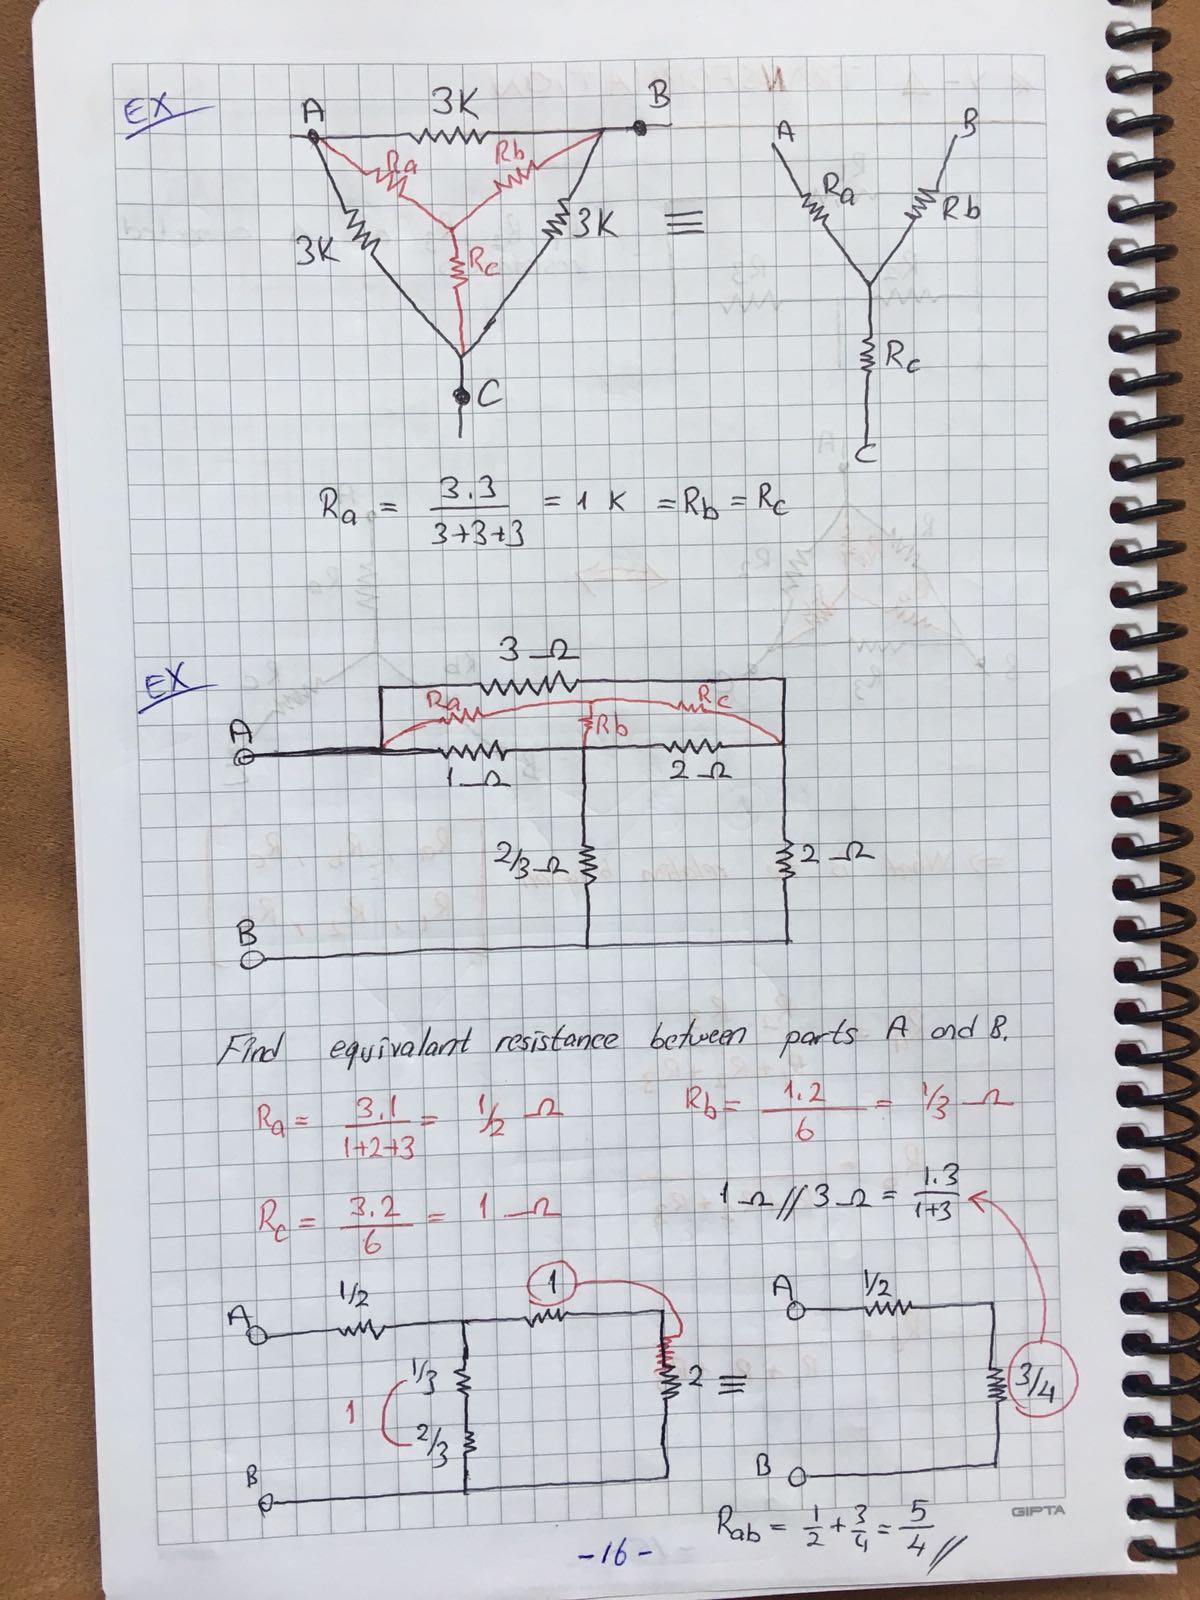 EX
A 3K B
Ra Rb
3K 3K
Rc
C
≡
A B
Ra Rb
Rc
C
Ra = 3.3 / 3+3+3 = 1 K = Rb = Rc
EX
3 Ω
Ra Rc
A Rb
1 Ω 2 Ω
2/3 Ω 2 Ω
B
Find equivalant resistance between parts A and B.
Ra = 3.1 / 1+2+3 = 1/2 Ω Rb = 1.2 / 6 = 1/3 Ω
Rc = 3.2 / 6 = 1 Ω 1 Ω // 3 Ω = 1.3 / 1+3
A 1/2 1
1/3 2
1
2/3
B
≡
A 1/2
3/4
B
Rab = 1/2 + 3/4 = 5/4 //
-16-
GIPTA